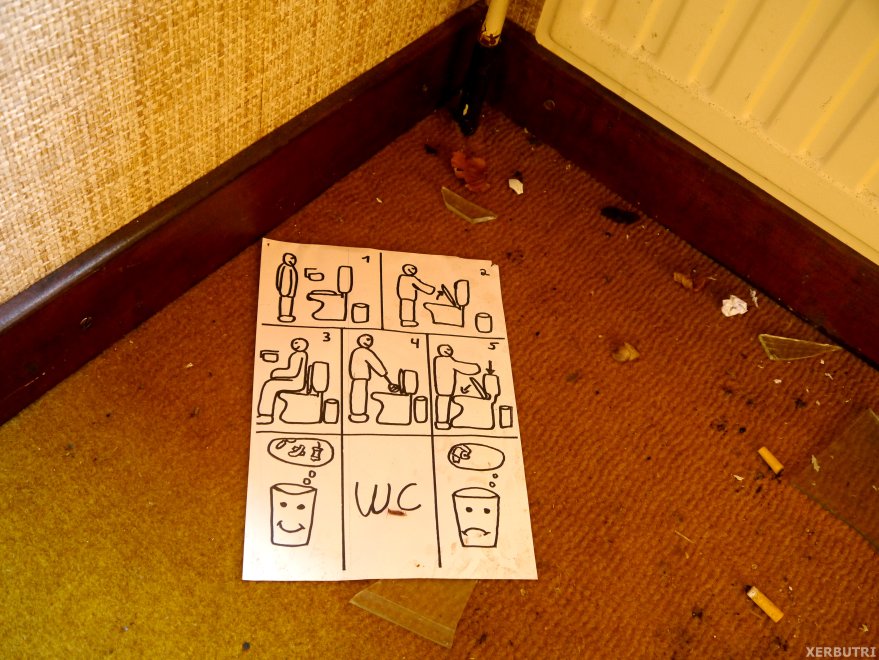 1
2
3
4
5
WC
XERBUTRI